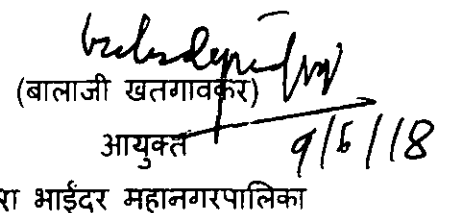 (बालाजी खतगावकर)
आयुक्त
9/6/18
रा भाईंदर महानगरपालिका